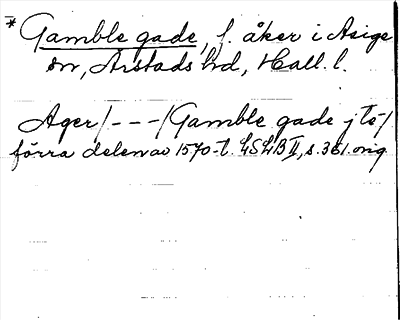 * Gamble gade, f. åker i Asige
sn, Årstads hd, Hall. l.
Ager /---/ Gamble gade j tē /
förra delen av 1570-t. LSLB II, s. 361. orig.